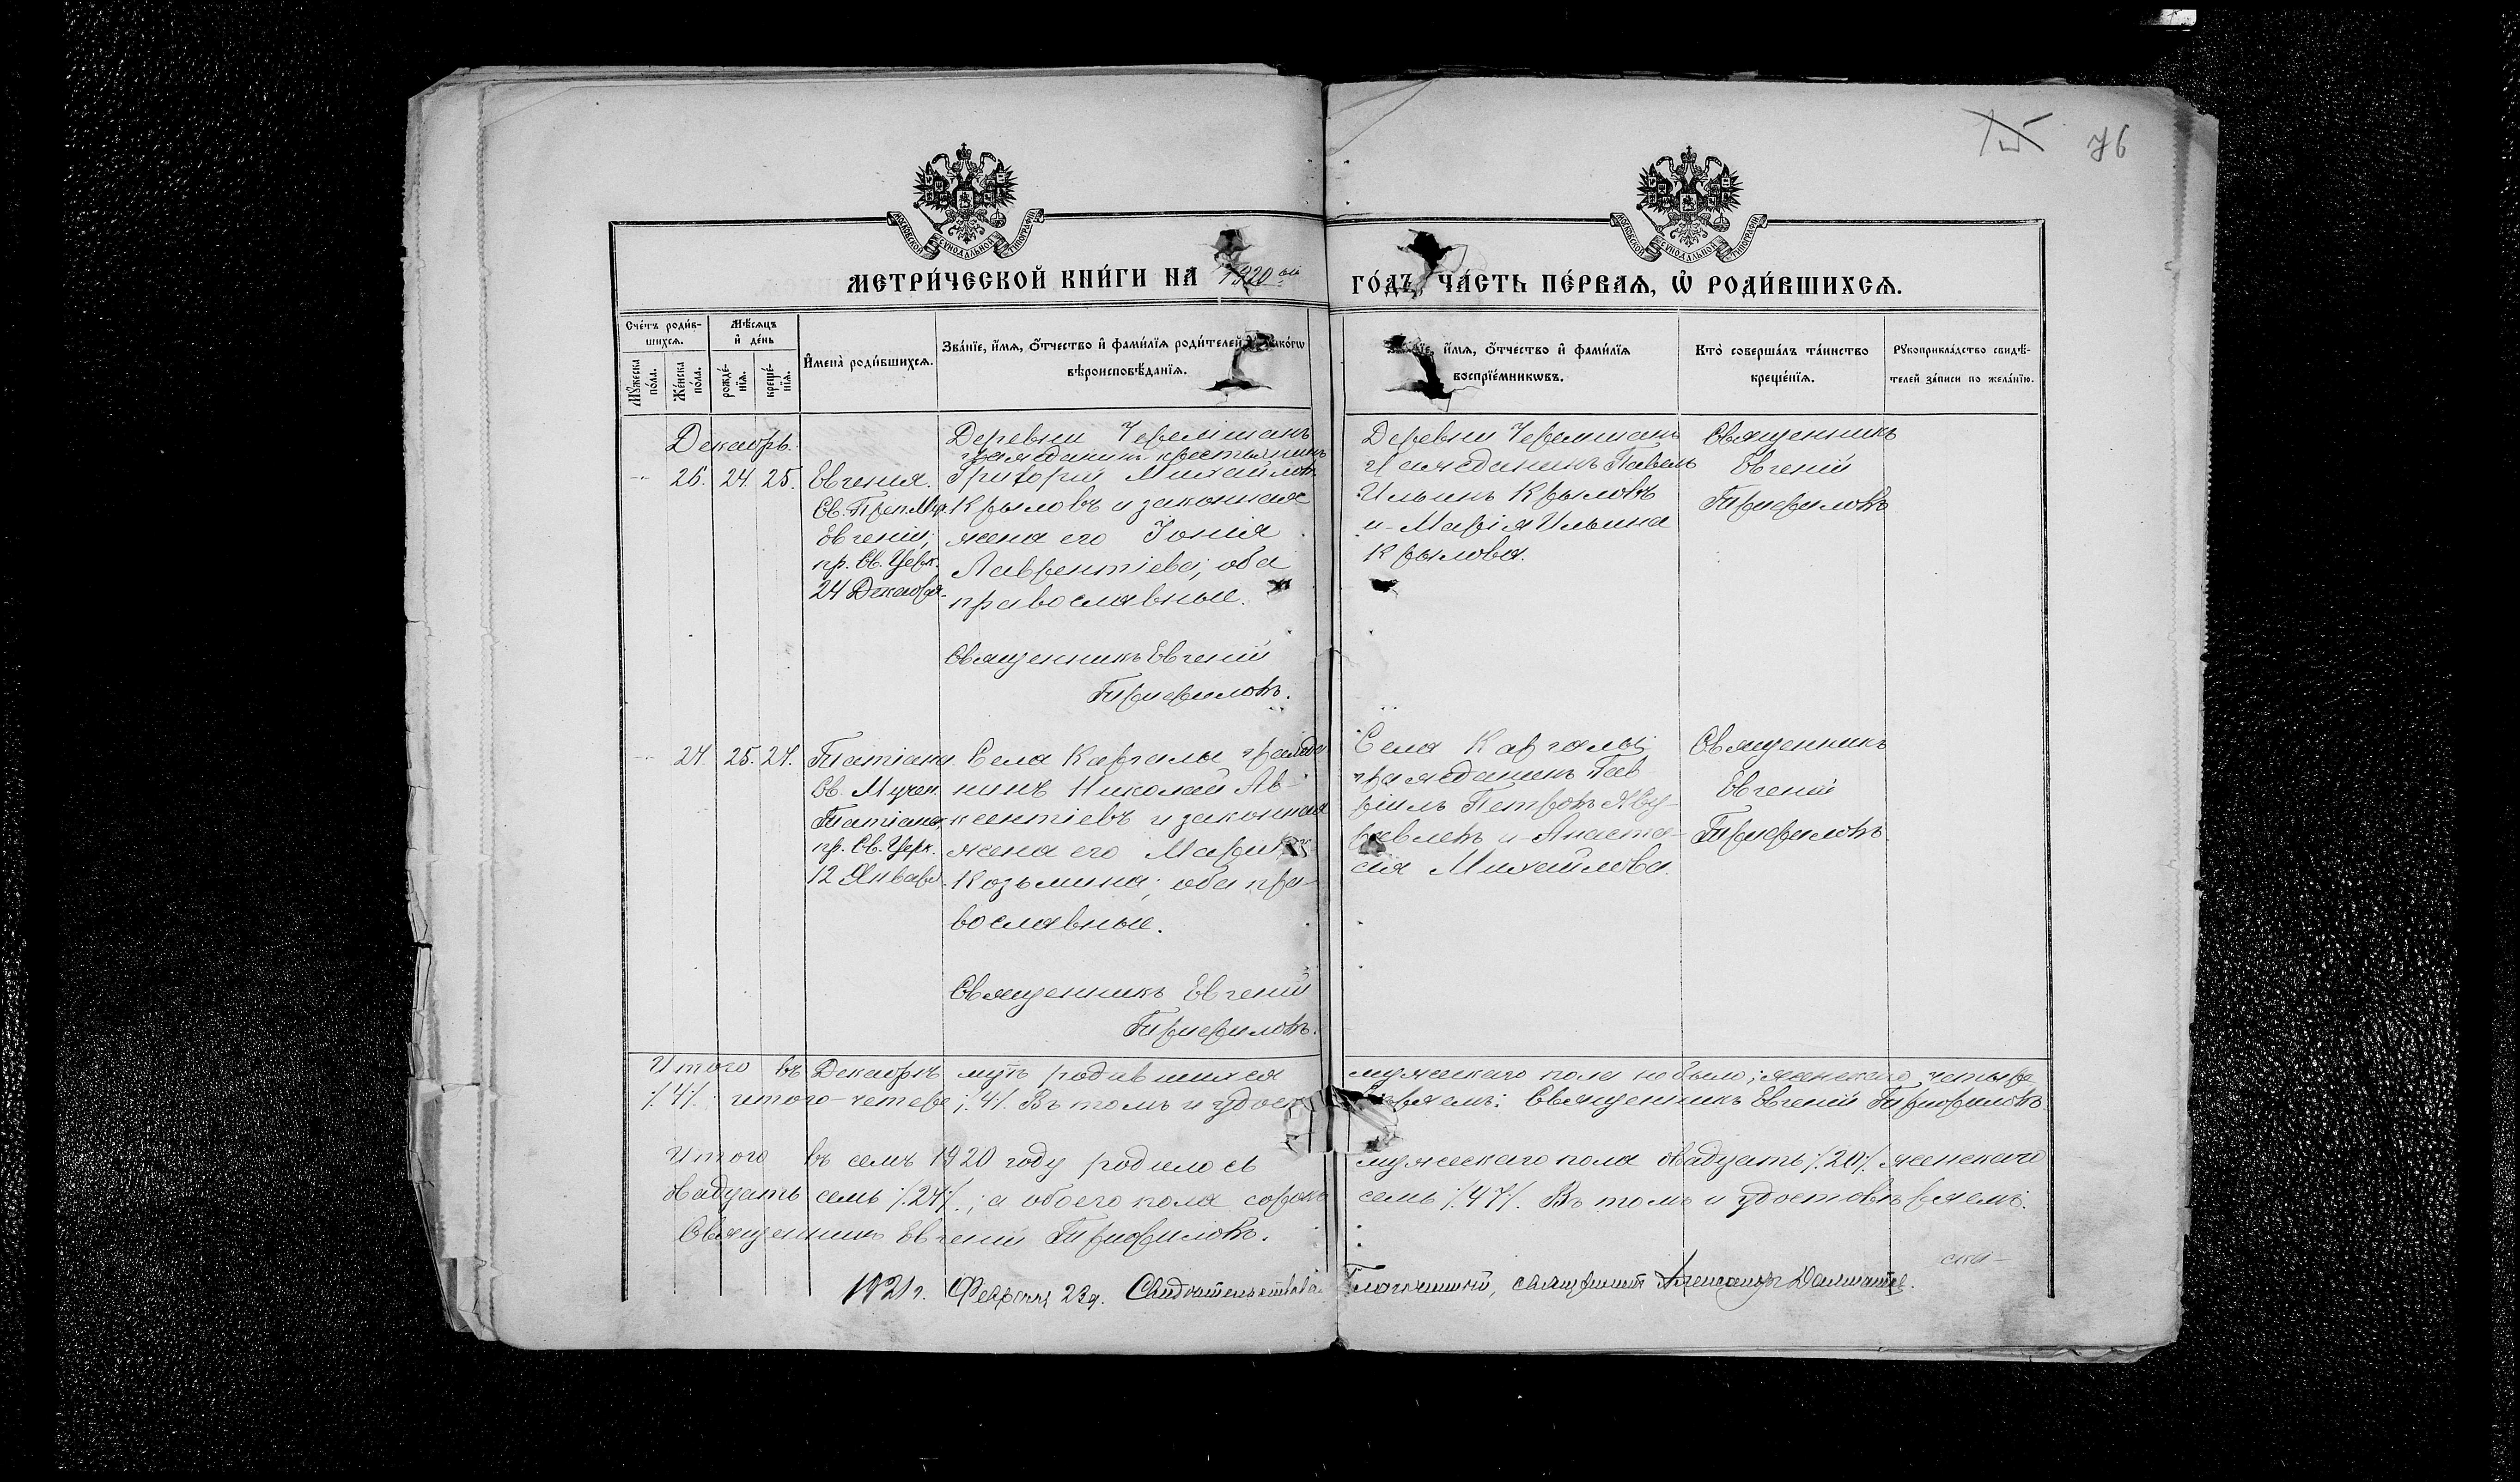 76
МОСКОВСКОЙ СѴНОДАЛЬНОЙ ТИПОГРАФІИ
МОСКОВСКОЙ СѴНОДАЛЬНОЙ ТИПОГРАФІИ
МЕТРИ́ЧЕСКОЙ КНИ́ГИ НА 1920 ый ГО́ДЪ, ЧА́СТЬ ПЕ́РВАѦ, Ѽ РОДИ́ВШИХСѦ.
Сче́тъ роди́в-
шихсѧ.
Мꙋ́жеска по́ла.
Же́нска по́ла.
Мѣ́сѧцъ
и҆ де́нь
рожде́-нїѧ.
креще́-нїѧ.
И҆мена̀ роди́вшихсѧ.
Зва́нїе, и҆́мѧ, ѻ҆́тчество и҆ фами́лїѧ роди́телей, и҆ како́гѡ
вѣроисповѣ́данїѧ.
и҆́мѧ, ѻ҆́тчество и҆ фами́лїѧ
воспрїе́мникѡвъ.
Кто̀ соверша́лъ та́инство
креще́нїѧ.
Рꙋкоприкла́дство свидѣ́-
телей за́писи по жела́нїю.
Декабрь.
26. 24. 25.
Евгенія.
Св. Преп. Муч.
Евгеніи,
пр. Св. Церк.
24 Декабря.
Деревни Черемшанъ
гражданинъ крестьянинъ
Григорій Михайловъ
Крыловъ и законная
жена его Іонія
Лаврентіева; оба
православные.
Священникъ Евгеній
Трифиловъ.
Деревни Черемшанъ
гражданинъ Павелъ
Ильинъ Крыловъ
и Марія Ильина
Крылова.
Священникъ
Евгеній
Трифиловъ
27. 25. 27.
Татіана.
Св. Мучен.
Татіаны,
пр. Св. Церк.
12 Января.
Села Каргалы гражда
нинъ Николай Ав-
ксентіевъ и законная
жена его Марія
Козьмина; оба пра-
вославные.
Священникъ Евгеній
Трифиловъ.
Села Каргалы
гражданинъ Гав
ріилъ Петровъ
и Анаста-
сія Михайлова.
Священникъ
Евгеній
Трифиловъ.
Итого въ Декабрѣ мцѣ родившихся мужескаго пола не было; женскаго четыре
/.4/. итого четыре /.4/. Въ томъ и Священникъ Евгеній Трифиловъ
Итого въ семъ 1920 году родилось мужескаго пола двадцать /.20/. женскаго
двадцать семь /.27/.; а обоего пола сорокъ семь /.47/. Въ томъ и удостовѣряемъ:
Священникъ Евгеній Трифиловъ.
1921 г. Февраля 23 д. Благочинный, священникъ Александръ